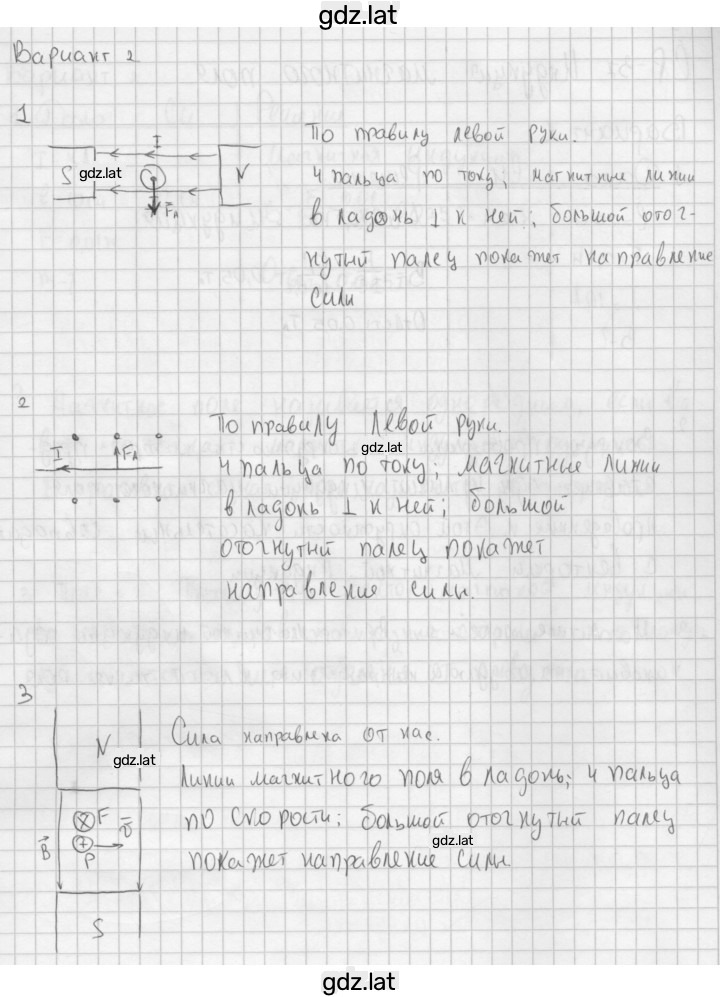 gdz.lat
Вариант 2
1
I
S
gdz.lat
N
Fₐ
По правилу левой руки.
4 пальца по току; магнитные линии
в ладонь ⊥ к ней; большой отог-
нутый палец покажет направление
сили
2
I
Fₐ
По правилу левой руки.
gdz.lat
4 пальца по току; магнитные линии
в ладонь ⊥ к ней; большой
отогнутый палец покажет
направление силы.
3
N
gdz.lat
F
B
V
P
S
Сила направлена от нас.
Линии магнитного поля в ладонь; 4 пальца
по скорости; большой отогнутый палец
gdz.lat
покажет направление силы.
gdz.lat